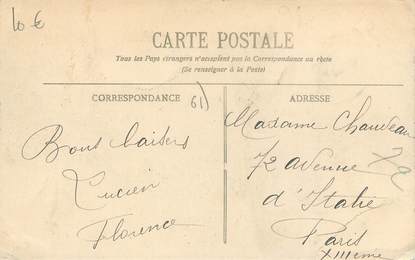 10 €
CARTE POSTALE
Tous les Pays étrangers n'acceptent pas la Correspondance au recto
(Se renseigner à la Poste)
CORRESPONDANCE
61)
ADRESSE
Bons baisers
Lucien
Florence
Madame Chauveau
72 avenue
d'Italie
Paris
XIIIeme